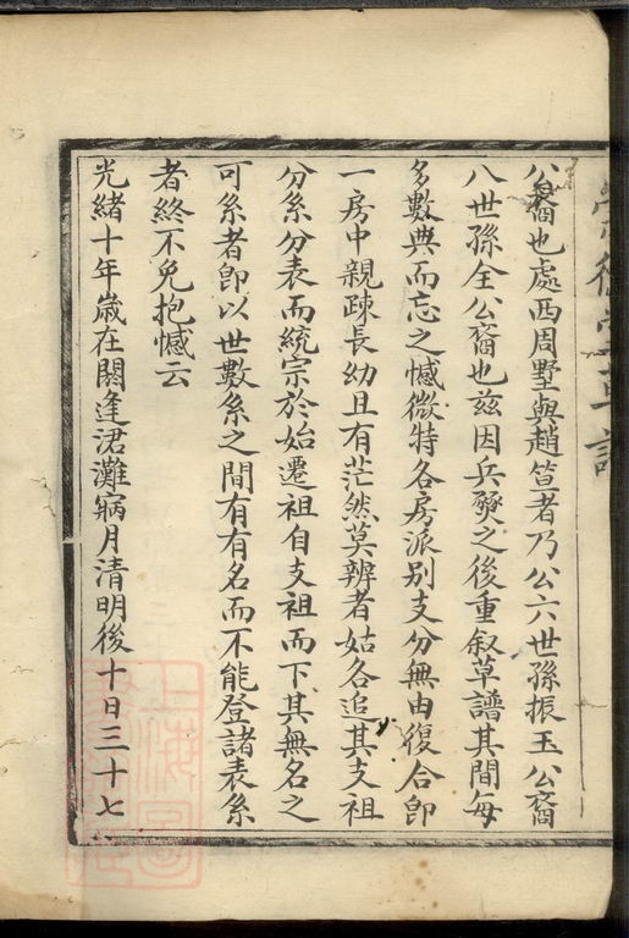 公裔也處西周墅與趙笪者乃公六世孫振玉公裔
八世孫全公裔也兹因兵燹之後重叙草譜其間每
多數典而忘之憾微特各房派别支分無由復合卽
一房中親疎長幼且有茫然莫辨者姑各追其支祖
分系分表而統宗於始遷祖自支祖而下其無名之
可系者卽以世數系之間有有名而不能登諸表系
者終不免抱憾云
光緒十年歲在閼逢涒灘寎月清明後十日三十七
上海圖